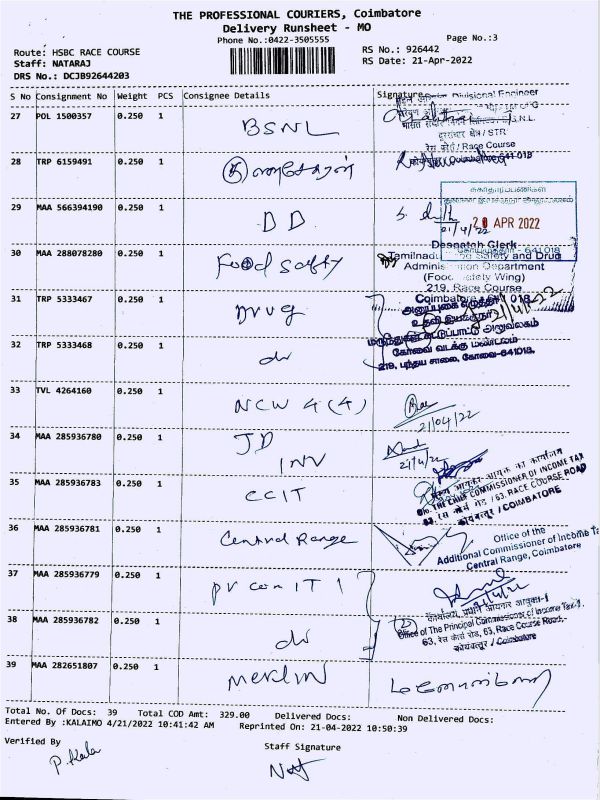 THE PROFESSIONAL COURIERS, Coimbatore
Delivery Runsheet - MO
Phone No.:0422-3505555
Page No.:3
Route: HSBC RACE COURSE
RS No.: 926442
Staff: NATARAJ
RS Date: 21-Apr-2022
DRS No.: DCJB92644203
S No Consignment No Weight PCS Consignee Details Signature
Divisional Engineer
27 POL 1500357 0.250 1 BSNL
दूरसंचार क्षेत्र / STR
रेस कोर्स / Race Course
28 TRP 6159491 0.250 1
29 MAA 566394190 0.250 1 DD
21/4/22
20 APR 2022
Despatch Clerk
30 MAA 288078280 0.250 1 Food safty
Tamilnadu Safety and Drug
Administration Department
(Food Safety Wing)
219, Race Course
Coimbatore - 641 018
31 TRP 5333467 0.250 1 Drug
21/4/22
உதவி இயக்குநர்
மருந்துகள் கட்டுப்பாட்டு அலுவலகம்
32 TRP 5333468 0.250 1 do
கோவை வடக்கு மண்டலம்
219, பந்தய சாலை, கோவை-641018.
33 TVL 4264160 0.250 1 NCW 4 (4)
21/04/22
34 MAA 285936780 0.250 1 JD
INV
21/4/22
35 MAA 285936783 0.250 1 CCIT
मुख्य आयकर आयुक्त का कार्यालय
O/o. THE CHIEF COMMISSIONER OF INCOME TAX
63, रेस कोर्स रोड / 63, RACE COURSE ROAD
कोयम्बत्तूर / COIMBATORE
36 MAA 285936781 0.250 1 Central Range
Office of the
Additional Commissioner of Income Ta
Central Range, Coimbatore
37 MAA 285936779 0.250 1 Pr com IT 1
38 MAA 285936782 0.250 1 do
Office of The Principal Commissioner of Income Tax-1,
63, रेस कोर्स रोड, 63, Race Course Road,-
कोयम्बत्तूर / Coimbatore
39 MAA 282651807 0.250 1 Merlin
Total No. Of Docs: 39 Total COD Amt: 329.00 Delivered Docs: Non Delivered Docs:
Entered By :KALAIMO 4/21/2022 10:41:42 AM Reprinted On: 21-04-2022 10:50:39
Verified By
P. Kala
Staff Signature